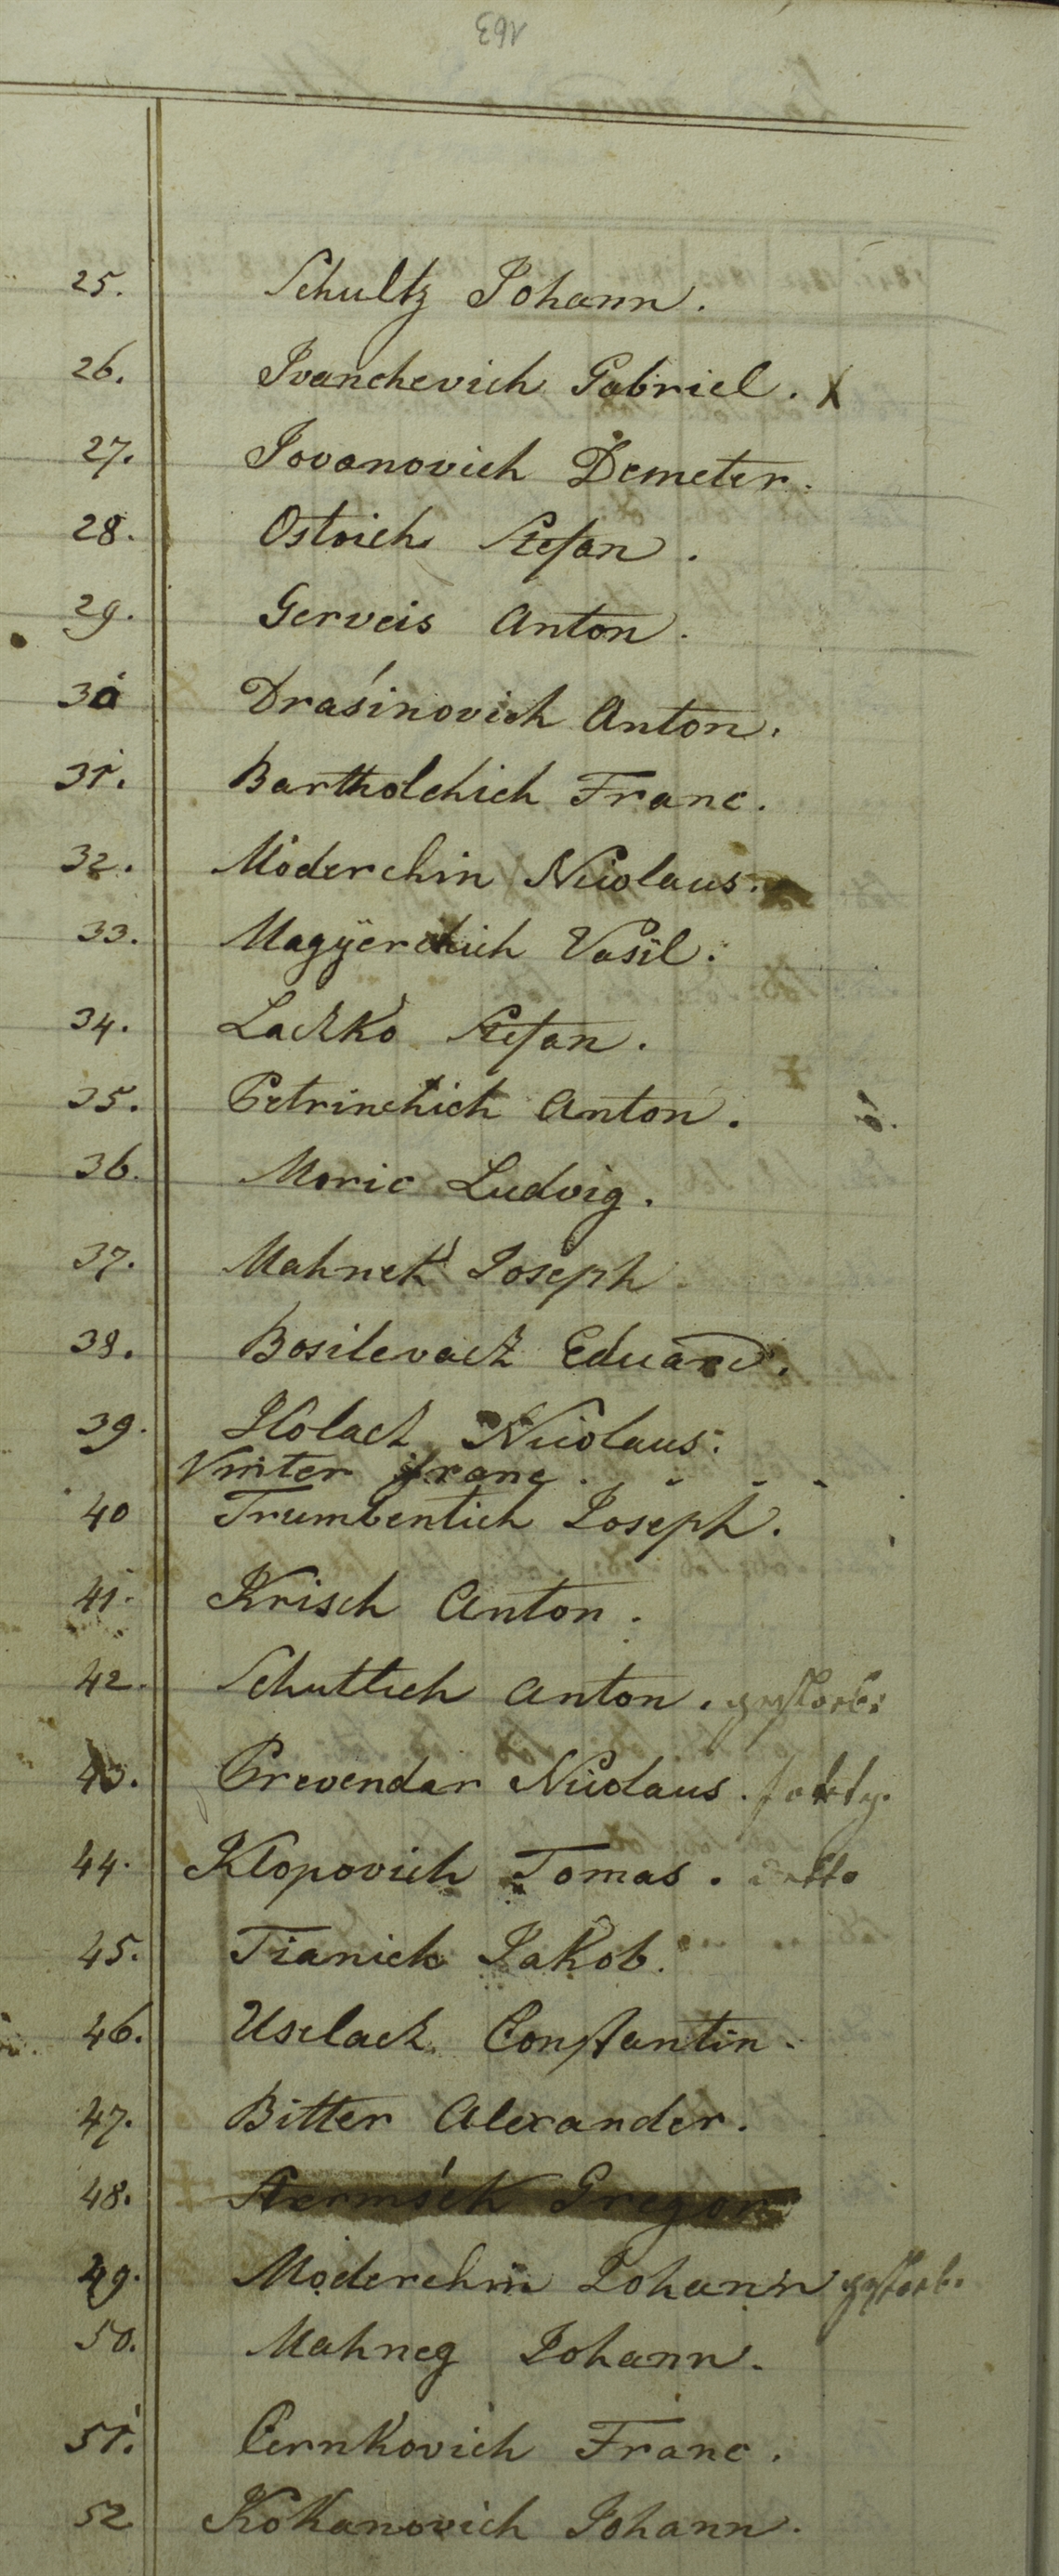 163
25. Schultz Johann.
26. Ivanchevich Gabriel. X
27. Jovanovich Demeter.
28. Ostoich Stefan.
29. Gerveis Anton.
30 Drasinovich Anton.
31. Bartholchich Franc.
32. Moderchin Nicolaus.
33. Magyerchich Vasil.
34. Laczko Stefan.
35. Petrinchich Anton.
36. Moric Ludvig.
37. Mahnek Joseph
38. Bosilevacz Eduard.
39. Holacz Nicolaus.
Vinter Franc.
40 Trumbentich Joseph.
41. Krisch Anton.
42. Schuttich Anton. gestorb:
43. Prevendar Nicolaus.
44. Klopovich Tomas. detto
45. Tianich Jakob.
46. Uselacz Constantin.
47. Bitter Alexander.
48. Gregor
49. Moderchin Johann gestorb.
50. Mahneg Johann.
51. Cernkovich Franc.
52 Kokanovich Johann.